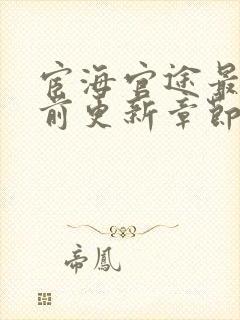 宦海官途最
前更新章節
帝鳳